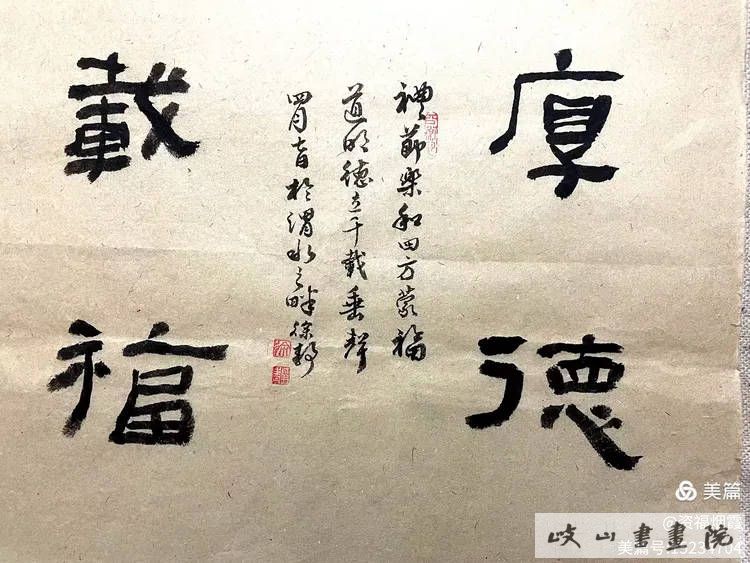 厚德
載福
禮節樂和四方蒙福
道明德立千載垂聲
冐言於渭水之畔徐
美篇
@资福烟霞
美篇号:15234704
岐山書畫院